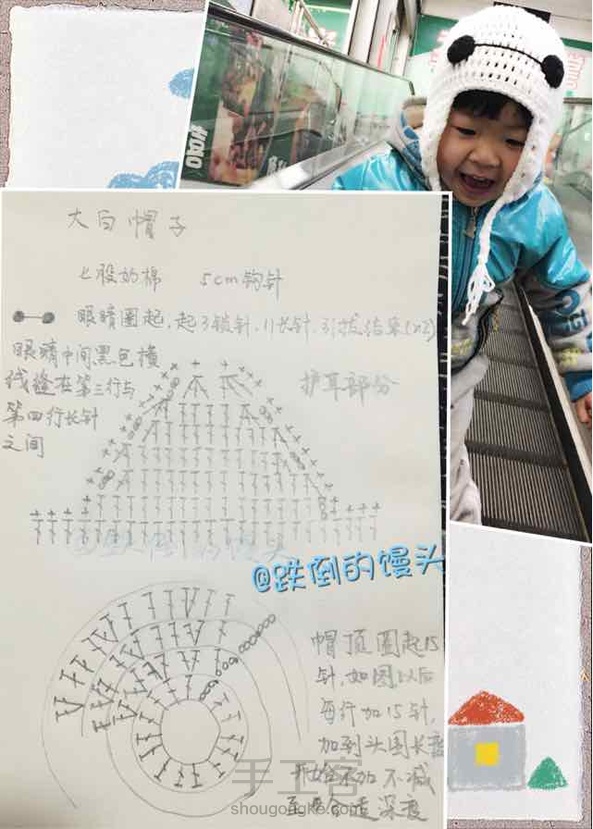 大白帽子
七股奶棉 5cm钩针
眼睛圈起,起3锁针、11长针、引拔结束(x2)
眼睛中间黑色横
线缝在第三行与
第四行长针
之间
护耳部分
@跌倒的馒头
帽顶圈起15
针,如图以后
每行加15针,
加到头围长度
开始不加不减
至合适深度
手工客
shougongke.com